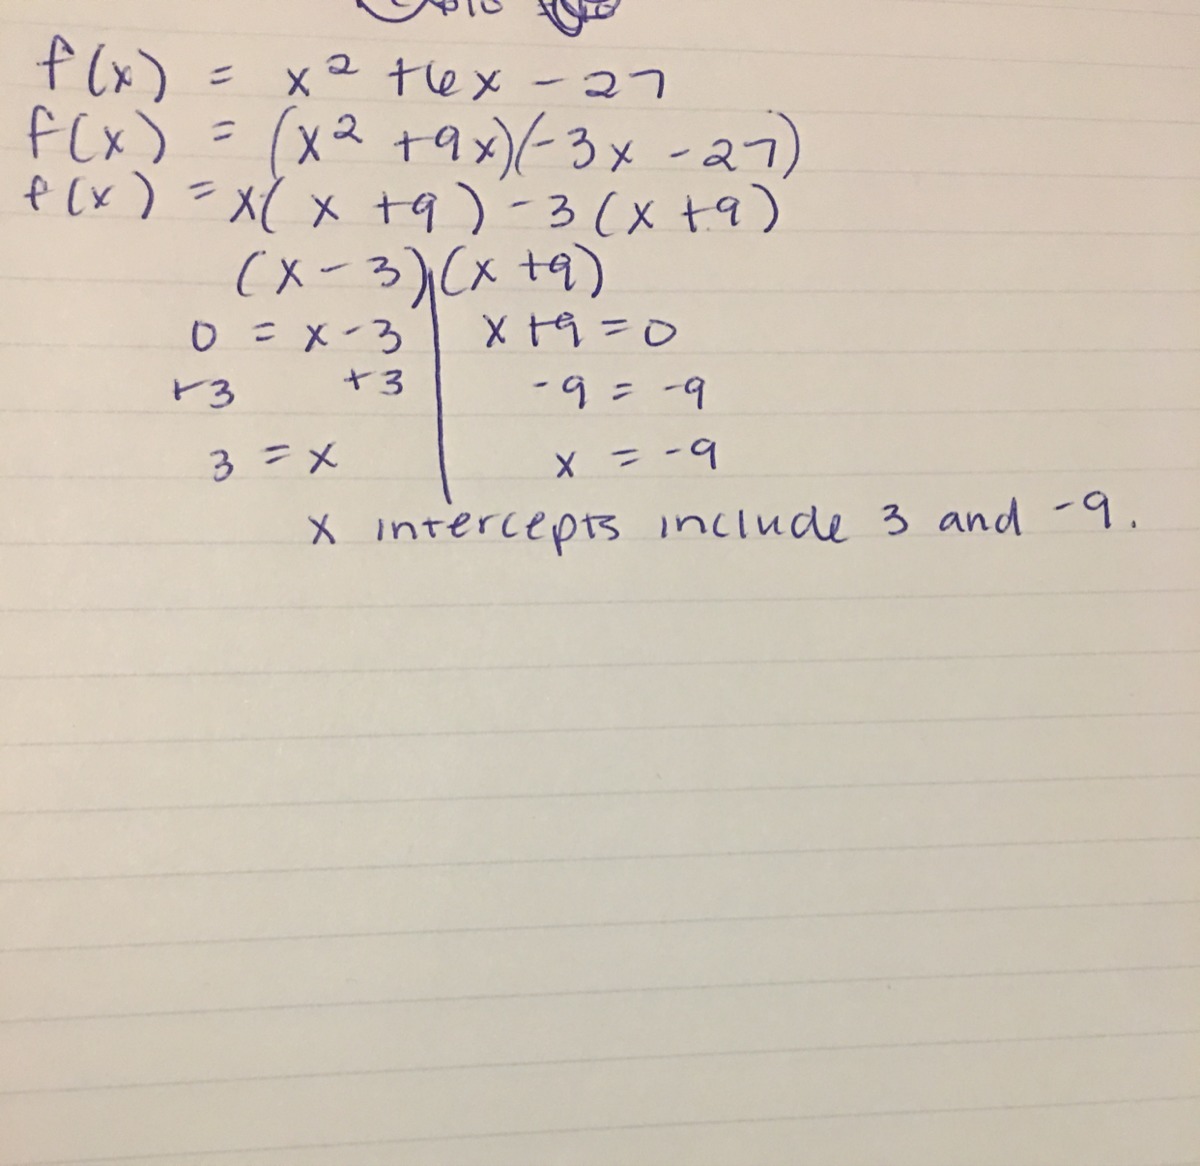 f(x) = x² + 6x - 27
f(x) = (x² + 9x)(-3x - 27)
f(x) = x(x + 9) - 3(x + 9)
(x - 3)(x + 9)
0 = x - 3 x + 9 = 0
+3 +3 -9 = -9
3 = x x = -9
x intercepts include 3 and -9.